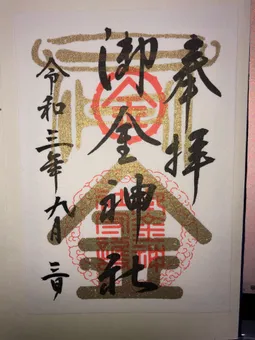 奉拝
御金神社
金
令和三年九月